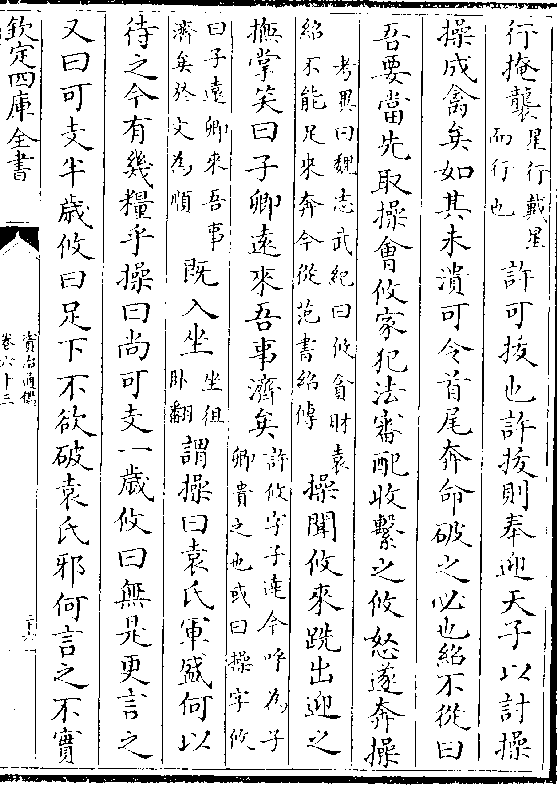 行掩襲星行戴星而行也許可拔也許拔則奉迎天子以討操
操成禽矣如其未潰可令首尾奔命破之必也紹不從曰
吾要當先取操會攸家犯法審配收繫之攸怒遂奔操
考異曰魏志武紀曰攸貪財袁紹不能足來奔今從范書紹傳操聞攸來跣出迎之
撫掌笑曰子卿遠來吾事濟矣許攸字子遠今呼為子卿貴之也或曰操字攸
曰子遠卿來吾事濟矣於文為順既入坐坐徂卧翻謂操曰袁氏軍盛何以
待之今有幾糧乎操曰尚可支一歲攸曰無是更言之
又曰可支半歲攸曰足下不欲破袁氏邪何言之不實
欽定四庫全書
資治通鑑
卷六十三